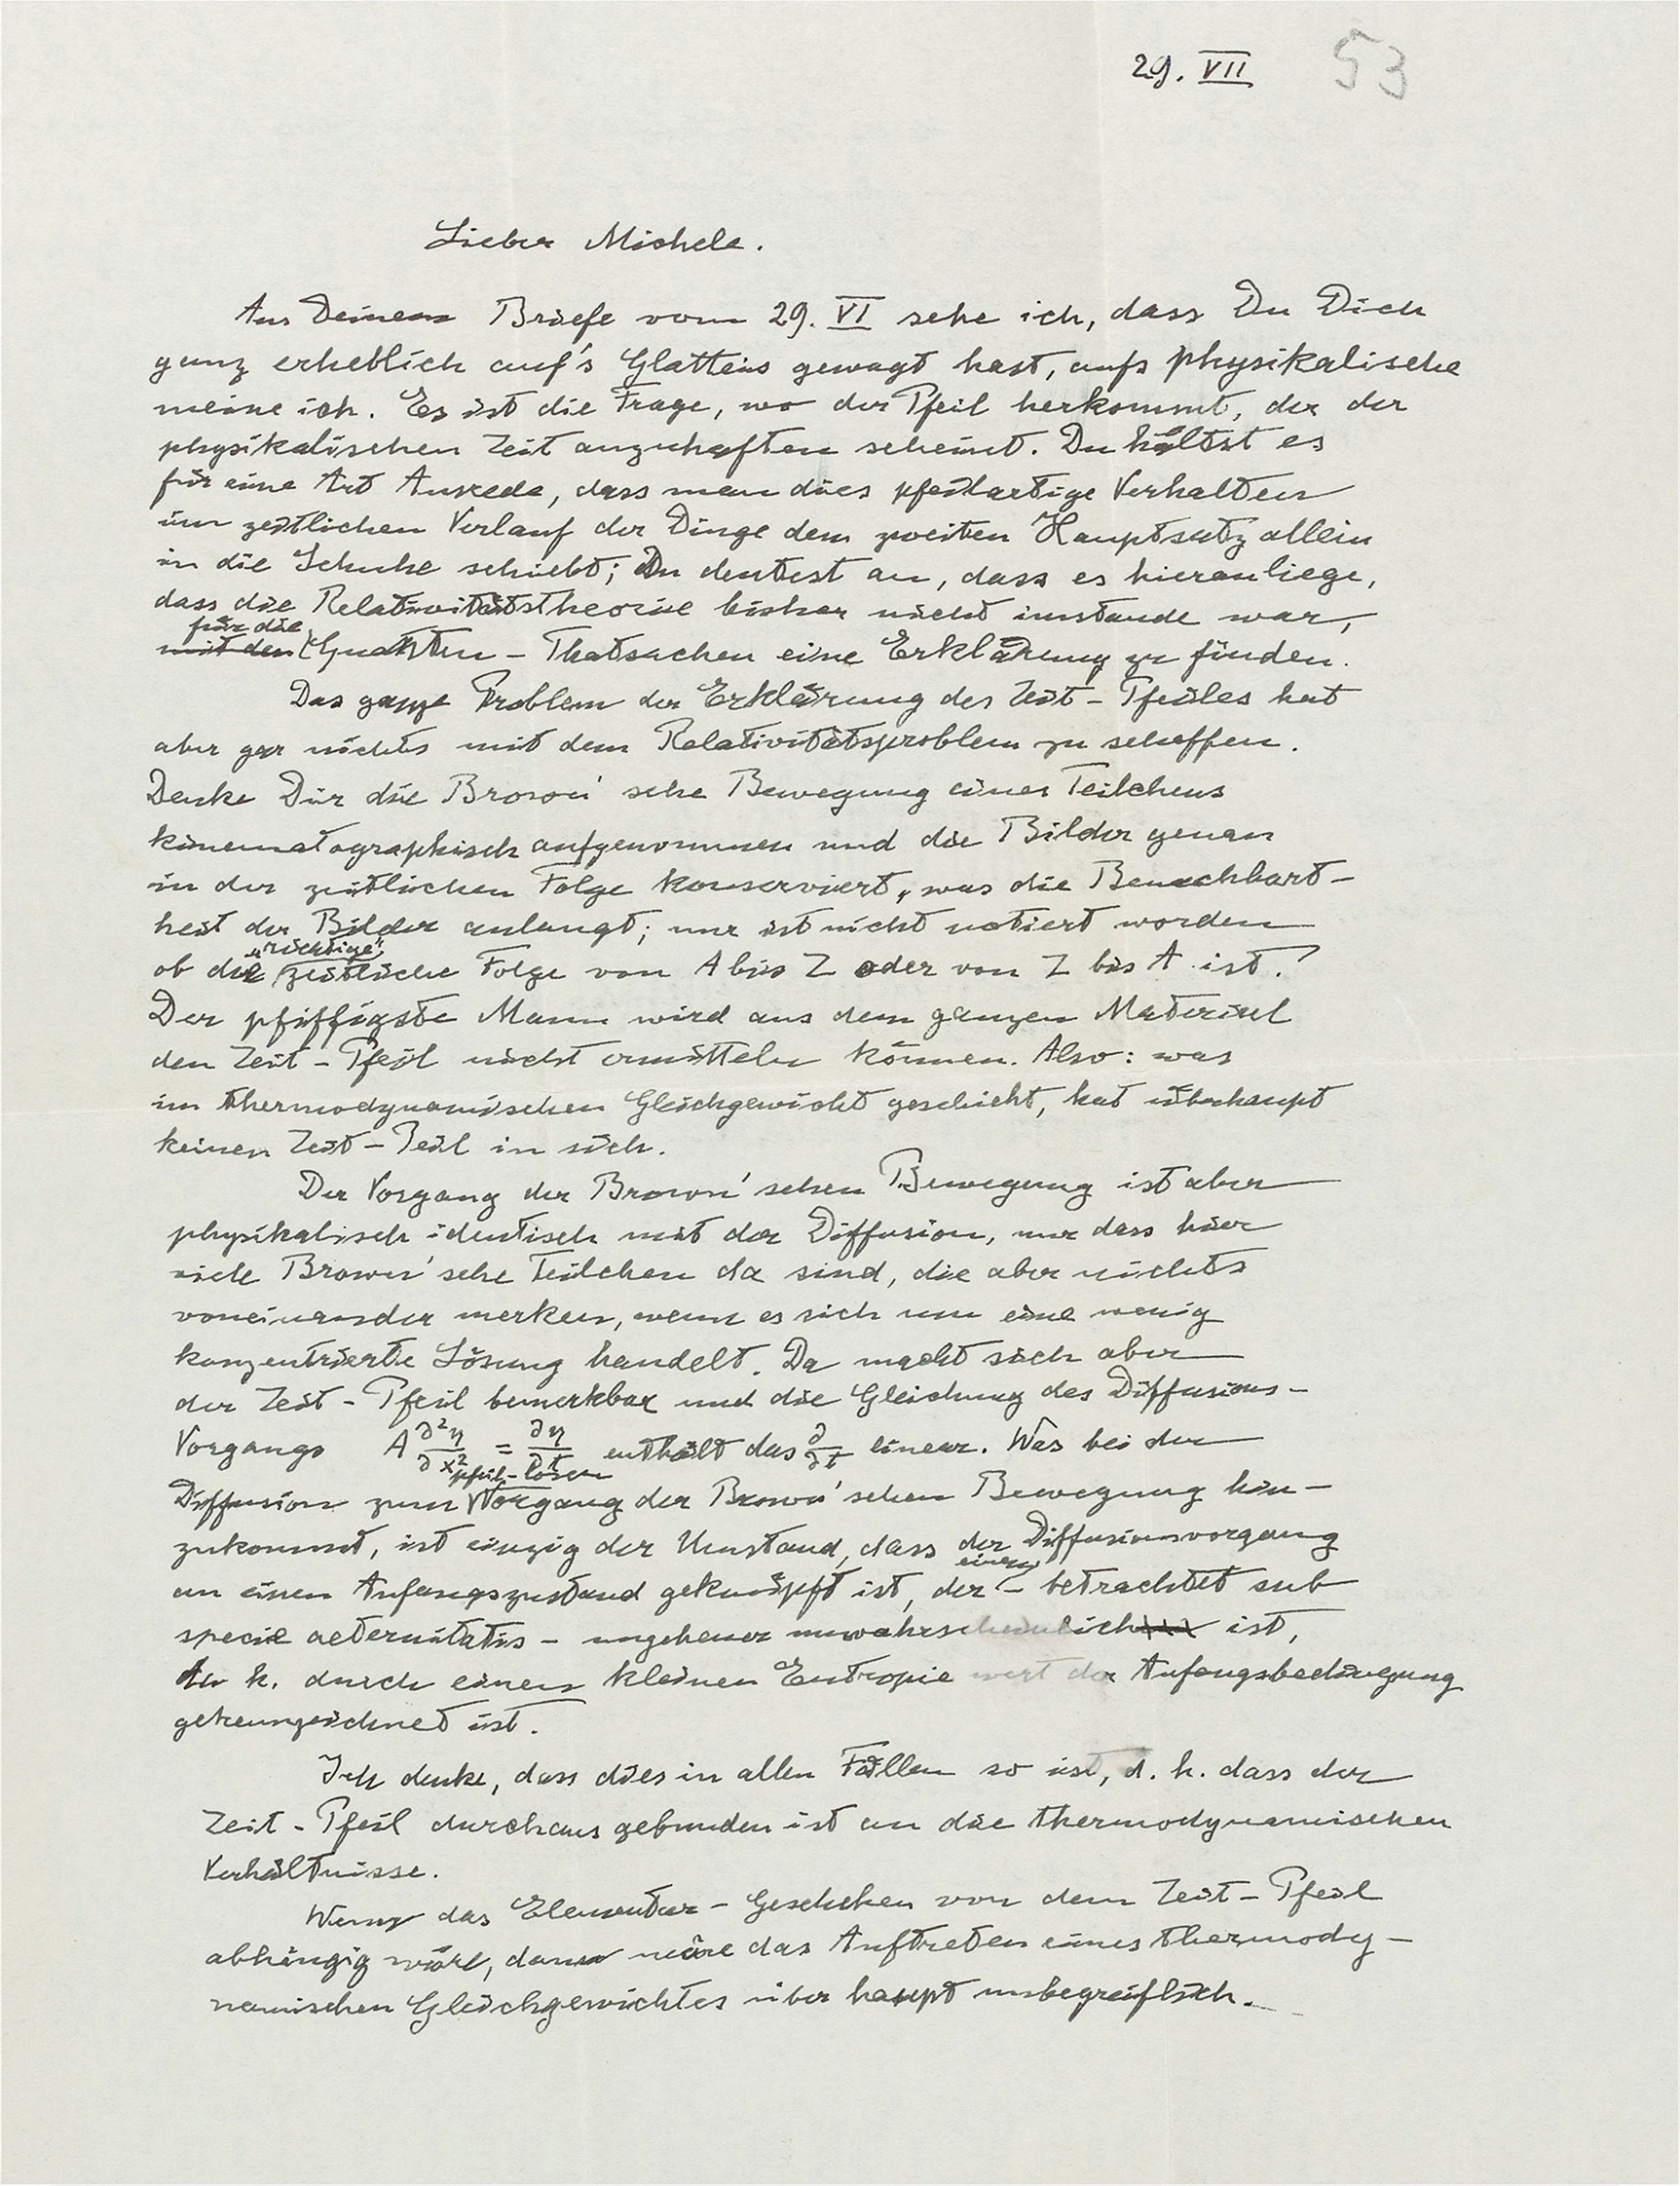 29. VII 53
Lieber Michele.
Aus Deinem Briefe vom 29. VI sehe ich, dass Du Dich
ganz erheblich auf's Glatteis gewagt hast, aufs physikalische
meine ich. Es ist die Frage, wo der Pfeil herkommt, der der
physikalischen Zeit anzuhaften scheint. Du hältst es
für eine Art Ausrede, dass man dies pfeilartige Verhalten
im zeitlichen Verlauf der Dinge dem zweiten Hauptsatz allein
in die Schuhe schiebt; Du deutest an, dass es hieran liege,
dass die Relativitätstheorie bisher nicht imstande war,
für die
mit den Quanten-Thatsachen eine Erklärung zu finden.
Das ganze Problem der Erklärung des Zeit-Pfeiles hat
aber gar nichts mit dem Relativitätsproblem zu schaffen.
Denke Dir die Brown'sche Bewegung eines Teilchens
kinematographisch aufgenommen und die Bilder genau
in der zeitlichen Folge konserviert, was die Benachbart-
heit der Bilder anlangt; nur ist nicht notiert worden
„richtige"
ob die zeitliche Folge von A bis Z oder von Z bis A ist.
Der pfiffigste Mann wird aus dem ganzen Material
den Zeit-Pfeil nicht ermitteln können. Also: was
im thermodynamischen Gleichgewicht geschieht, hat überhaupt
keinen Zeit-Feil in sich.
Der Vorgang der Brown'schen Bewegung ist aber
physikalisch identisch mit der Diffusion, nur dass hier
viele Brown'sche Teilchen da sind, die aber nichts
voneinander merken, wenn es sich um eine wenig
konzentrierte Lösung handelt. Da macht sich aber
der Zeit-Pfeil bemerkbar und die Gleichung des Diffusions-
Vorgangs A ∂²η/∂x² = ∂η/∂t enthält das ∂/∂t linear. Was bei der
pfeil-losen
Diffusion zum Vorgang der Brown'schen Bewegung hin-
zukommt, ist einzig der Umstand, dass der Diffusionsvorgang
an einen Anfangszustand geknüpft ist, der - betrachtet sub
specie aeternitatis - ungeheuer unwahrscheinlich ist,
d. h. durch einen kleinen Entropiewert der Anfangsbedingung
gekennzeichnet ist.
Ich denke, dass dies in allen Fällen so ist, d. h. dass der
Zeit-Pfeil durchaus gebunden ist an die thermodynamischen
Verhältnisse.
Wenn das Elementar-Geschehen von dem Zeit-Pfeil
abhängig wäre, dann wäre das Auftreten eines thermody-
namischen Gleichgewichtes überhaupt unbegreiflich.